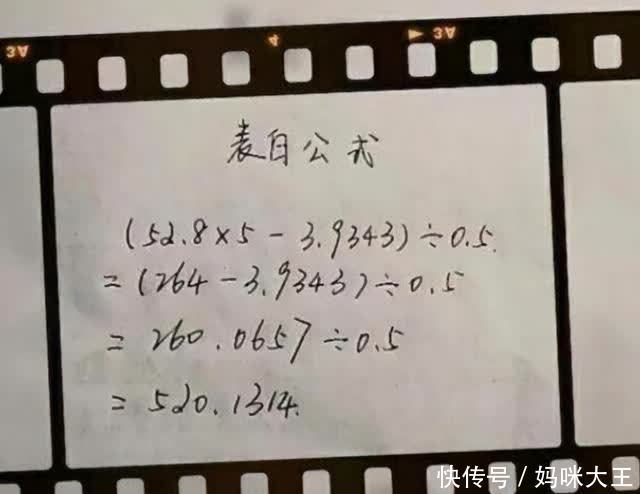 3A
4
3A
表白公式
(52.8×5-3.9343)÷0.5.
=(264-3.9343)÷0.5
=260.0657÷0.5
=520.1314.
快传号/妈咪大王